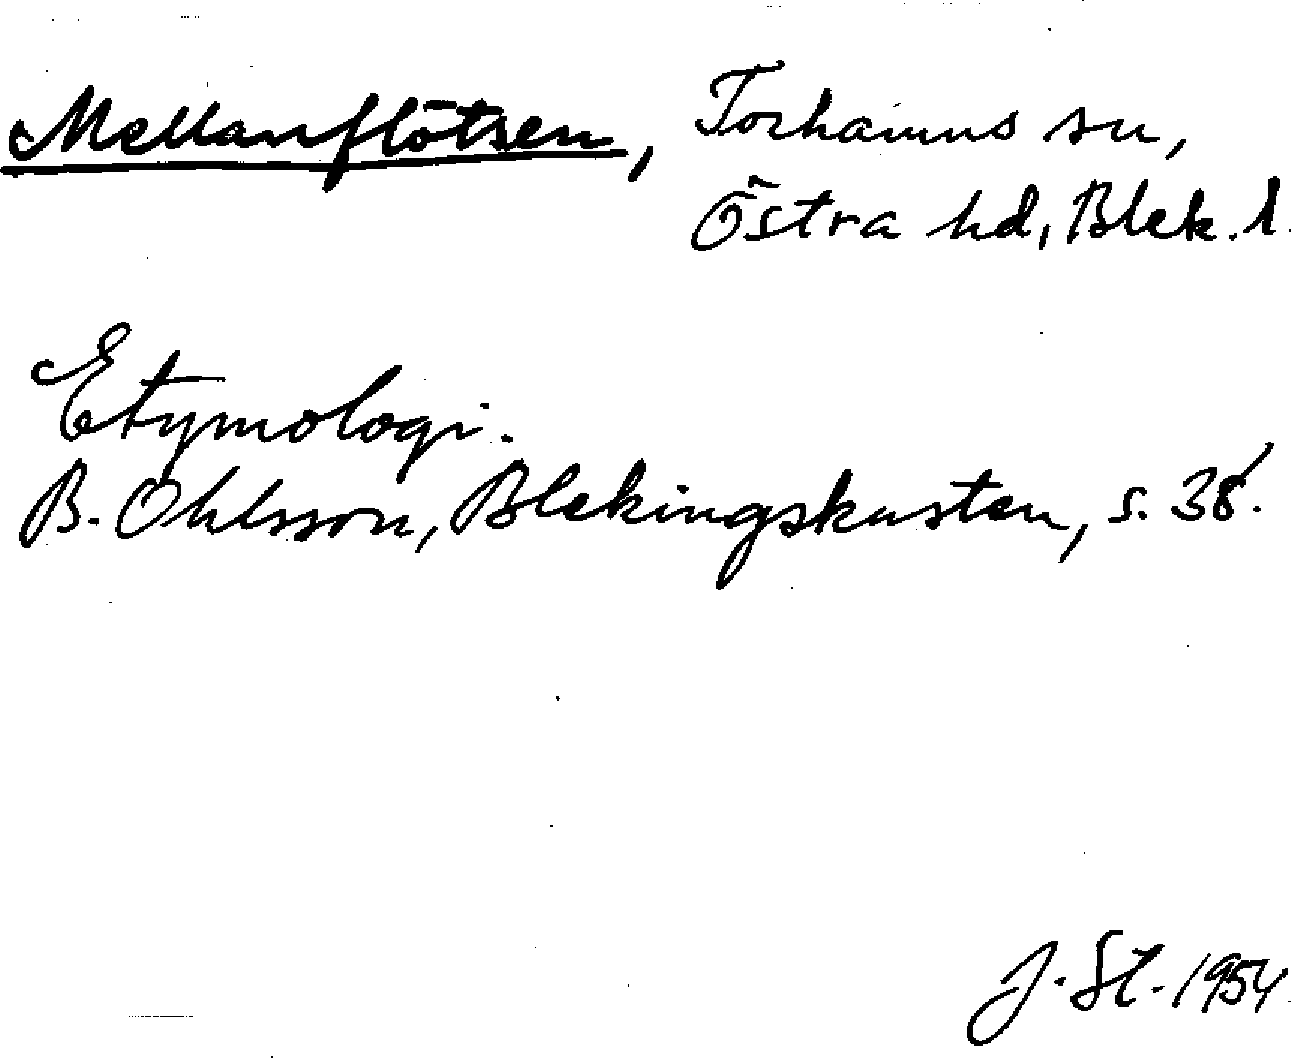 Mellanflötsen, Torhamns sn,
Östra hd, Blek. l.
Etymologi.
B. Ohlsson, Blekingskusten, s. 38.
J. St. 1954